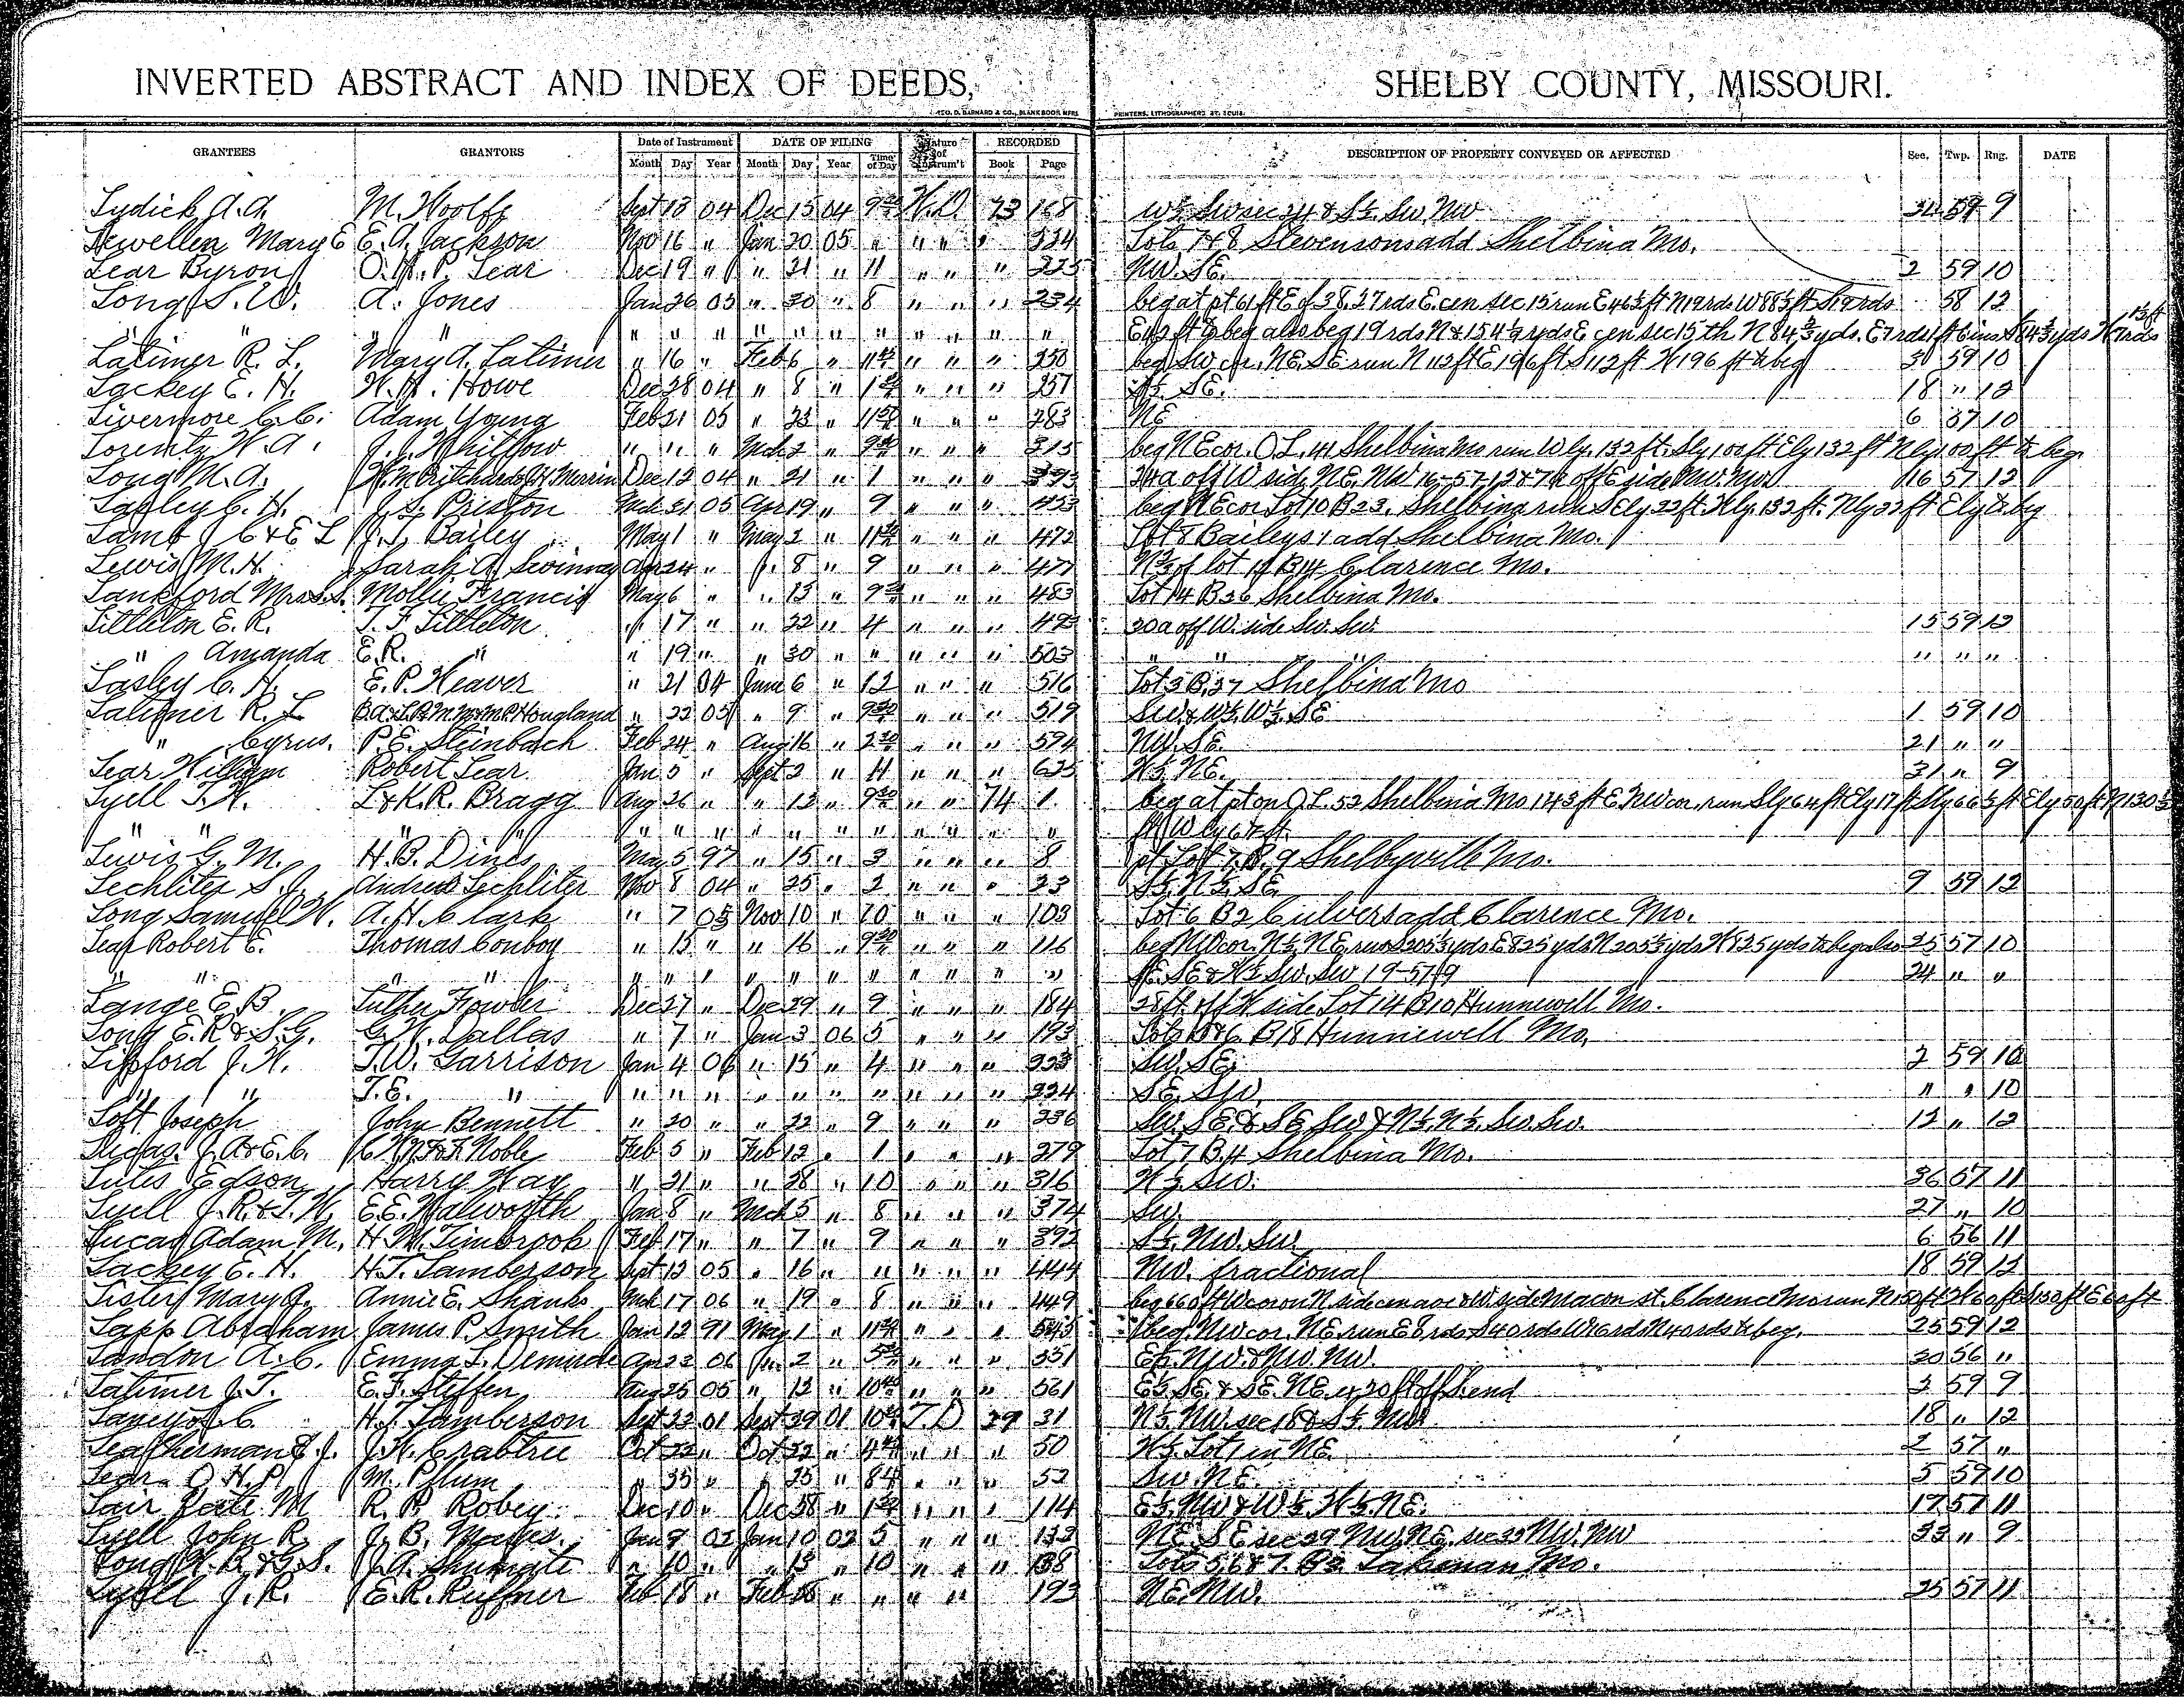 INVERTED ABSTRACT AND INDEX OF DEEDS, SHELBY COUNTY, MISSOURI.
GEO. D. BARNARD & CO., BLANK BOOK MFRS PRINTERS, LITHOGRAPHERS ST. LOUIS.
GRANTEES GRANTORS Date of Instrument DATE OF FILING Nature of Instrum't RECORDED DESCRIPTION OF PROPERTY CONVEYED OR AFFECTED Sec. Twp. Rng. DATE
Month Day Year Month Day Year Time of Day Book Page
Lydick A.A. M. Woolff Sept 13 04 Dec 15 04 W.D. 73 168 W½ Sw sec 24 & S½ Sw. Nw 34 59 9
Lewellen Mary E E.A. Jackson Nov 16 " Jan 20 05 " " " " 224 Lots 7&8 Stevensons add Shelbina Mo.
Lear Byron O.H.P. Lear Dec 19 " " 21 " 11 " " " 225 NW. SE. 2 59 10
Long S.W. A. Jones Jan 26 05 " 30 " 8 " " " 234 beg at pt 61 ft E of 38.27 rds E. cen sec 15 run E 46½ ft N 19 rds W 88½ ft S 19 rds 58 12
" " " " " " " " " " " " " " "
Latimer R. L. Mary A. Latimer " 16 " Feb 6 " " " " 250 beg Sw cor. NE. SE run N 112 ft E 196 ft S 112 ft W 196 ft to beg 30 59 10
Lackey E. H. W. H. Howe Dec 28 04 " 8 " " " " 257 SE. 18 " 12
Livermore C.C. Adam Young Feb 21 05 " 23 " " " " 283 NE 6 57 10
Lorentz W.A. J.J. Whitlow " " " Mch 2 " " " " 315 beg NE cor. O.L. 41 Shelbina Mo run Wly. 132 ft. Sly 100 ft Ely 132 ft Nly 100 ft to beg.
Long M.A. Dec 12 04 " 21 " 1 " " " 393 24a off W side NE. NW 16-57-12 & 7a off E side NW. NW 16 57 12
Lasley C. H. J.S. Preston Mch 21 05 Apr 19 " 9 " " " 453 beg NE cor Lot 10 B 23, Shelbina run SEly 22 ft. Wly. 132 ft. Nly 22 ft Ely to beg
Lamb J C & E L J. T. Bailey May 1 " May 2 " " " " 472 Lot 8 Baileys 1 add Shelbina Mo.
Lewis M.H. Sarah A. Swinney Apr 24 " " 8 " 9 " " " 477 N½ of lot B 14 Clarence Mo.
Lankford Mrs S.S. Mollie Francis May 6 " " 13 " " " " 483 Lot 14 B 36 Shelbina Mo.
Littleton E. R. T. F. Littleton " 17 " " 22 " 4 " " " 493 30a off W. side Sw. Sw. 15 59 12
" Amanda E.R. " " 19 " " 30 " " " " " 503 " " " " " "
Lasley C. H. E. P. Weaver " 21 04 June 6 " 12 " " " 516 Lot 3 B. 37 Shelbina Mo
Latimer R. L. Hougland " 22 05 " 9 " " " " 519 SW & W½. W½. SE 1 59 10
" Cyrus. P.E. Steinbach Feb 24 " Aug 16 " " " " 594 NW. SE. 21 " "
Lear William Robert Lear Jan 5 " Sept 2 " 11 " " " 625 W½ NE. 31 " 9
Lyell T.W. L & K.R. Bragg Aug 26 " " 12 " " " 74 1 beg at pt on O L. 52 Shelbina Mo 143 ft E. NW cor. run Sly 64 ft Ely 17 ft Sly 66½ ft Ely 50 ft N 130½
" " " " " " " " " " " " " " " ft W ly 67 ft.
Lewis G. M. H. B. Dines May 5 97 " 15 " 3 " " " 8 pt Lot 7. B. 9 Shelbyville Mo.
Lechliter S. J. Andrew Lechliter Nov 8 04 " 25 " 2 " " " 23 S½. N½. SE. 9 59 12
Long Samuel W. A.H. Clark " 7 05 Nov 10 " 10 " " " 103 Lot 6 B 2 Culvers add Clarence Mo.
Lear Robert E. Thomas Conboy " 15 " " 16 " " " " 116 beg NW cor. N½ NE, run S 205⅓ yds E 825 yds N 205⅓ yds W 825 yds to beg also 25 57 10
" " " " " " " " " " " " " " " SE. SE & W½ Sw. Sw 19-57-9 24 " "
Lange E B Luther Fowler Dec 27 " Dec 29 " 9 " " " 184 28 ft. off W side Lot 14 B 10 Hunnewell Mo.
Long E.R & S.G. G. W. Dallas " 7 " Jan 3 06 5 " " " 193 Lots 5&6 B 18 Hunnewell Mo.
Lipford J. W. T.W. Garrison Jan 4 06 " 15 " 4 " " " 223 SW. SE. 2 59 10
" " T. E. " " " " " " " " " " " 224 SE. SW. " " 10
Loft Joseph John Bennett " 20 " " 22 " 9 " " " 236 SW. SE. & SE SW & N½. N½. Sw. Sw. 12 " 12
Lucas. J. A & E. C. Noble Feb 5 " Feb 12 " 1 " " " 279 Lot 7 B. 4 Shelbina Mo.
Liles Edson Harry Way " 21 " " 28 " 10 " " " 316 W½ SW. 36 57 11
Lyell J. R. & T. W. E.E. Walworth Jan 8 " Mch 5 " 8 " " " 374 Sw. 27 " 10
Lucas Adam M. H. M. Timbrook Feb 17 " " 7 " 9 " " " 392 S½. NW. SW 6 56 11
Lackey E. H. H.T. Lamberson Sept 13 05 " 16 " 11 " " " 444 NW. fractional 18 59 12
Lister Mary J. Annie E. Shanks Mch 17 06 " 19 " 8 " " " 449
Lapp Abraham James P. Smith Jan 12 91 May 1 " " " " 545 beg. NW cor. NE. run E 8 rds S 40 rds W 16 rds N 40 rds to beg. 25 59 12
Landon A. C. Emma L. Apr 23 06 Ju 2 " " " " 551 E½. NW & NW. NW. 30 56 "
Latimer J. T. E. F. Steffen Aug 25 05 " 12 " " " " 561 E½ SE. & SE. NE. 3 59 9
H. T. Lamberson Sept 23 01 Sept 29 01 T D 29 31 N½. NW. sec 18 & S½. NW 18 " 12
Leatherman J. J.W. Crabtree Oct 22 " Oct 22 " " " " 50 W½. Lot 1 in NE. 2 57 "
Lear O H.P. M. Plum " " " 25 " " " " 52 SW. NE. 5 59 10
Lair M R. P. Robey Dec 10 " Dec " " " " 114 E½. NW & W½. W½. NE. 17 57 11
Lyell John R. J. B. Jan 9 02 Jan 10 02 5 " " " 133 NE. SE sec 29 NW. NE. sec 33 NW. NW 33 " 9
Long J.A. Shumate " 10 " " 13 " 10 " " " 138 Lots 5, 6 & 7. B 2. Lakenan Mo.
Lyell J. R. E. R. Ruffner Feb 18 " Feb 18 " " " " 193 NE. NW. 25 57 11